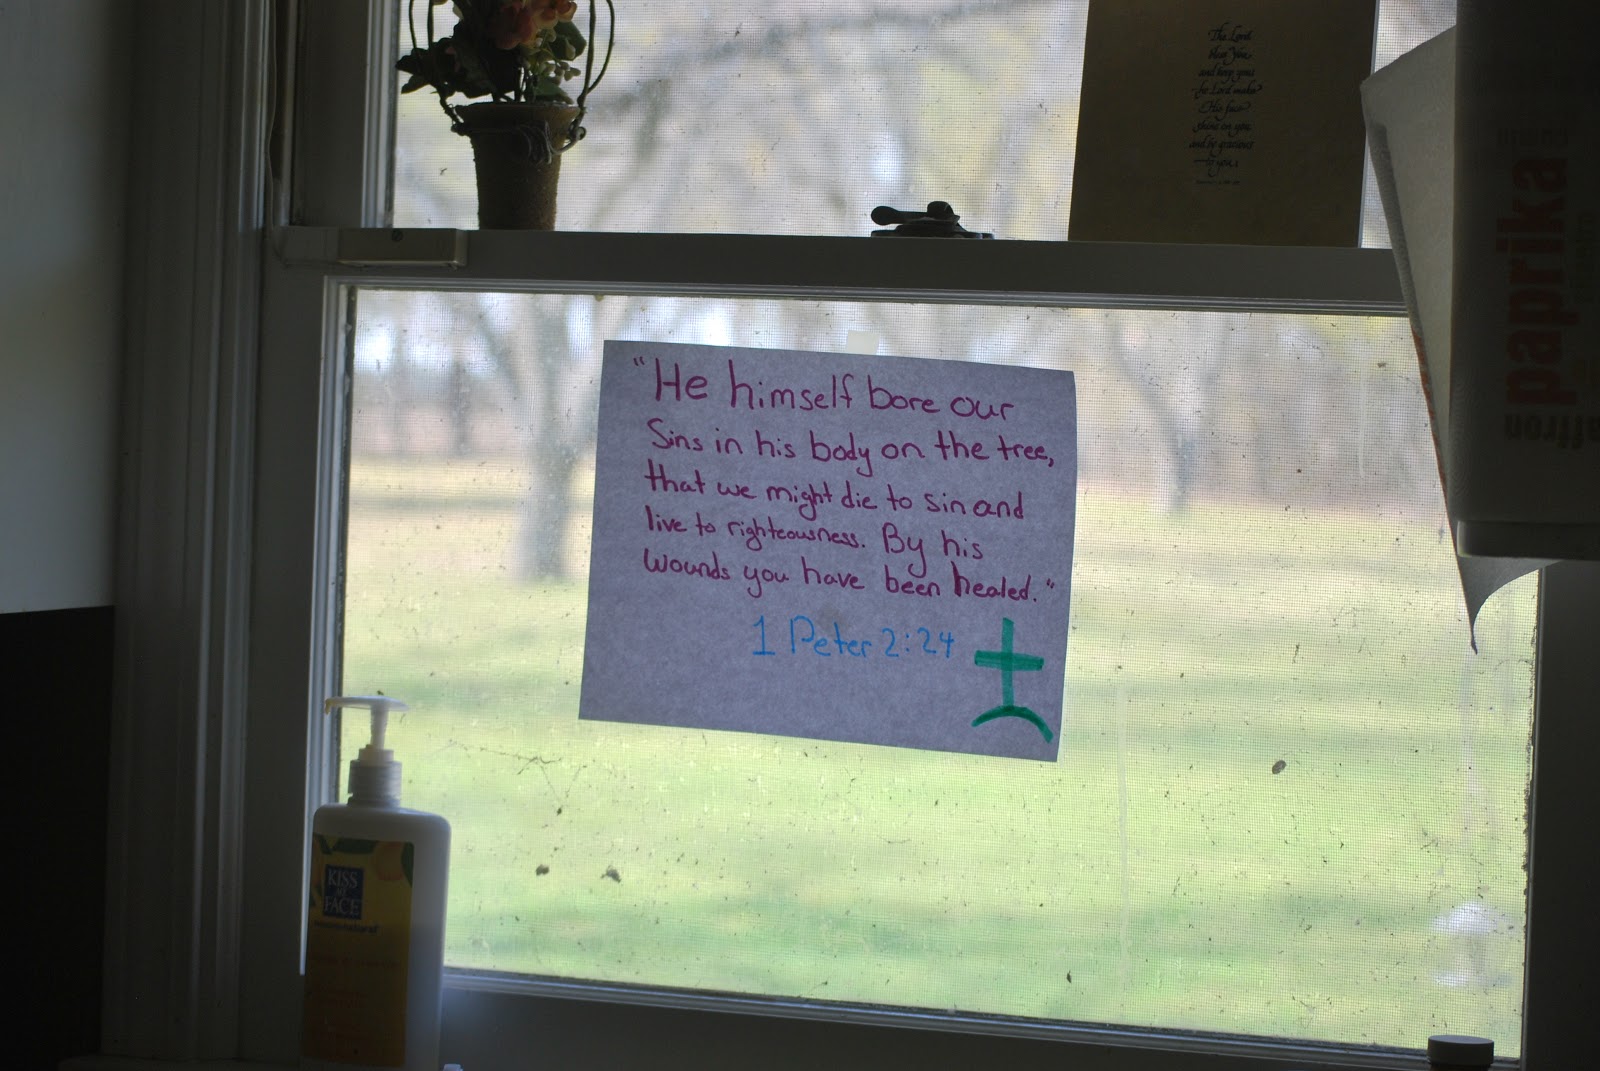 The Lord
bless You
and keep you
the Lord make
His face
shine on you
and be gracious
to you
"He himself bore our
Sins in his body on the tree,
that we might die to sin and
live to righteousness. By his
Wounds you have been healed."
1 Peter 2:24
KISS
MY
FACE
paprika